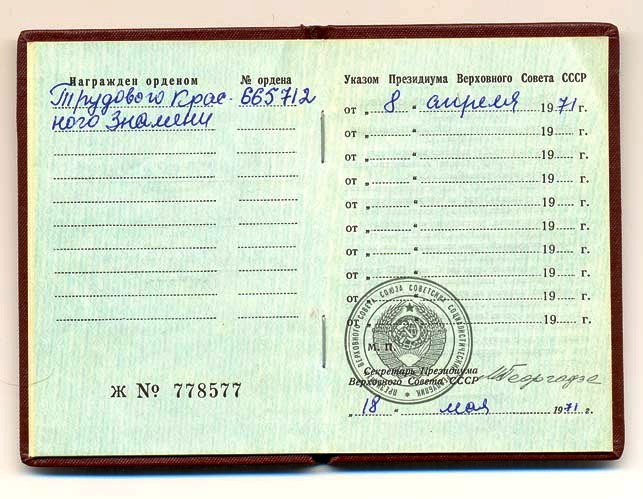 Награжден орденом
№ ордена
Трудового Крас-
665712
ного Знамени
Ж № 778577
Указом Президиума Верховного Совета СССР
от „ 8 “ апреля 1971 г.
от „ “ 19 г.
от „ “ 19 г.
от „ “ 19 г.
от „ “ 19 г.
от „ “ 19 г.
от „ “ 19 г.
от „ “ 19 г.
от „ “ 19 г.
от „ “ 19 г.
ПРЕЗИДИУМ ВЕРХОВНОГО СОВЕТА СОЮЗА СОВЕТСКИХ СОЦИАЛИСТИЧЕСКИХ РЕСПУБЛИК
М. П.
Секретарь Президиума
Верховного Совета СССР
МГеоргадзе
„ 18 “ мая 1971 г.